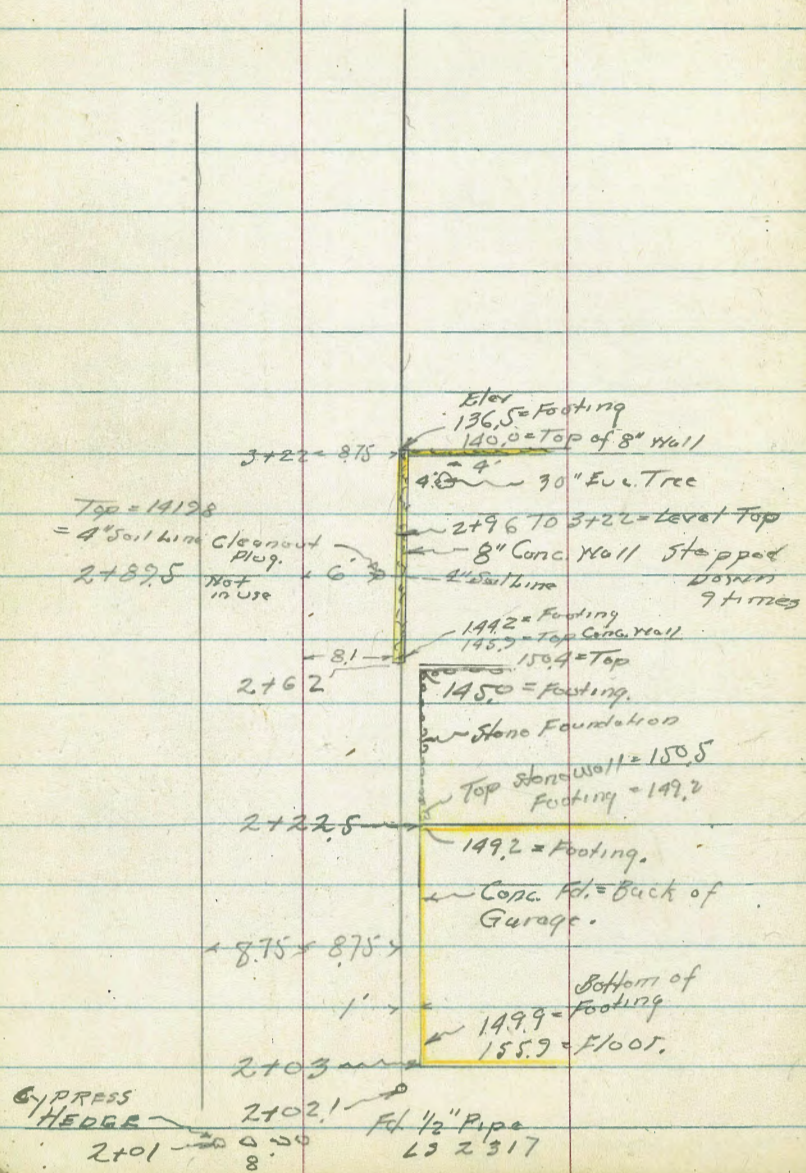 Elev
136.5 = Footing
140.0 = Top of 8" Wall
3+22 8.75
4'
4'
30" Euc. Tree
Top = 141.98
= 4" Soil Line
2+89.5
Cleanout
Plug.
Not
in use
6'
2+96 TO 3+22 = Level Top
8" Conc. Wall Stepped
Down
9 times
4" Soil Line
144.2 = Footing
145.9 = Top Conc. Wall
150.4 = Top
8.1
2+62
145.0 = Footing.
Stone Foundation
Top stonewall = 150.5
Footing = 149.2
2+22.5
149.2 = Footing.
Conc. Fd. = Back of
Garage.
8.75 8.75
1'
Bottom of
Footing
149.9 =
155.9 = Floor.
2+03
2+02.1
Fd. 1/2" Pipe
LS 2317
CYPRESS
HEDGE
2+01
8